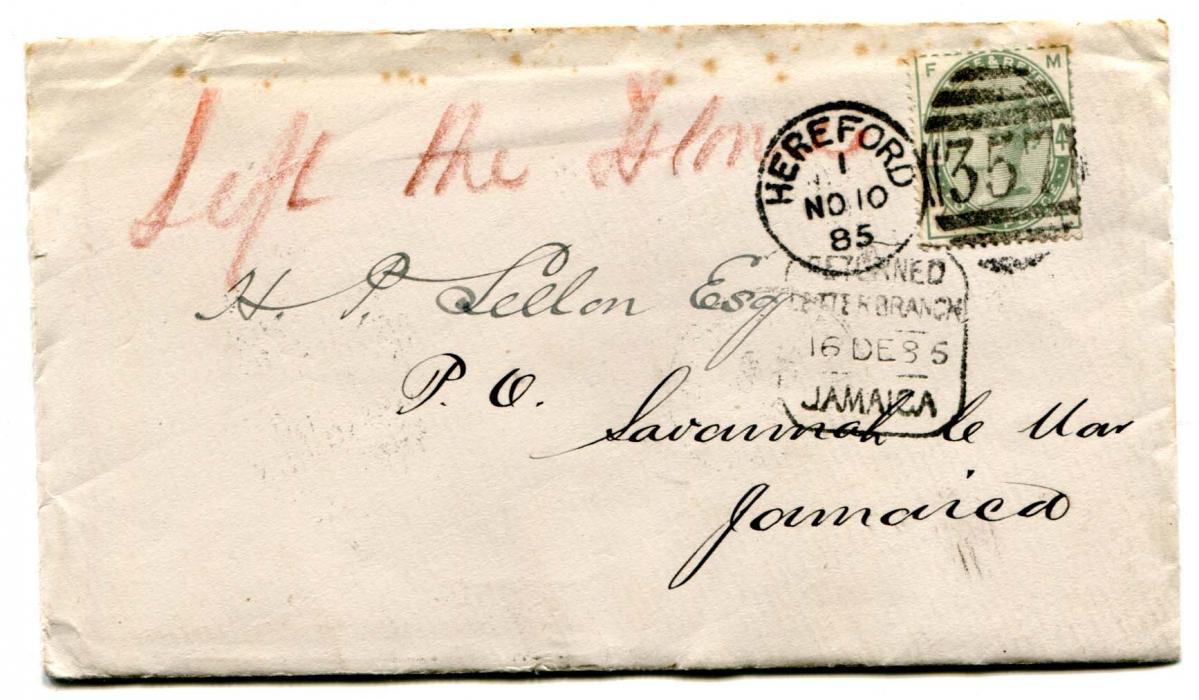 Left the Island
F M
HEREFORD
1
NO 10
85
357
4
RETURNED
LETTER BRANCH
16 DE 85
JAMAICA
H. P. Sellon Esq
P. O.
Savannah le Mar
Jamaica